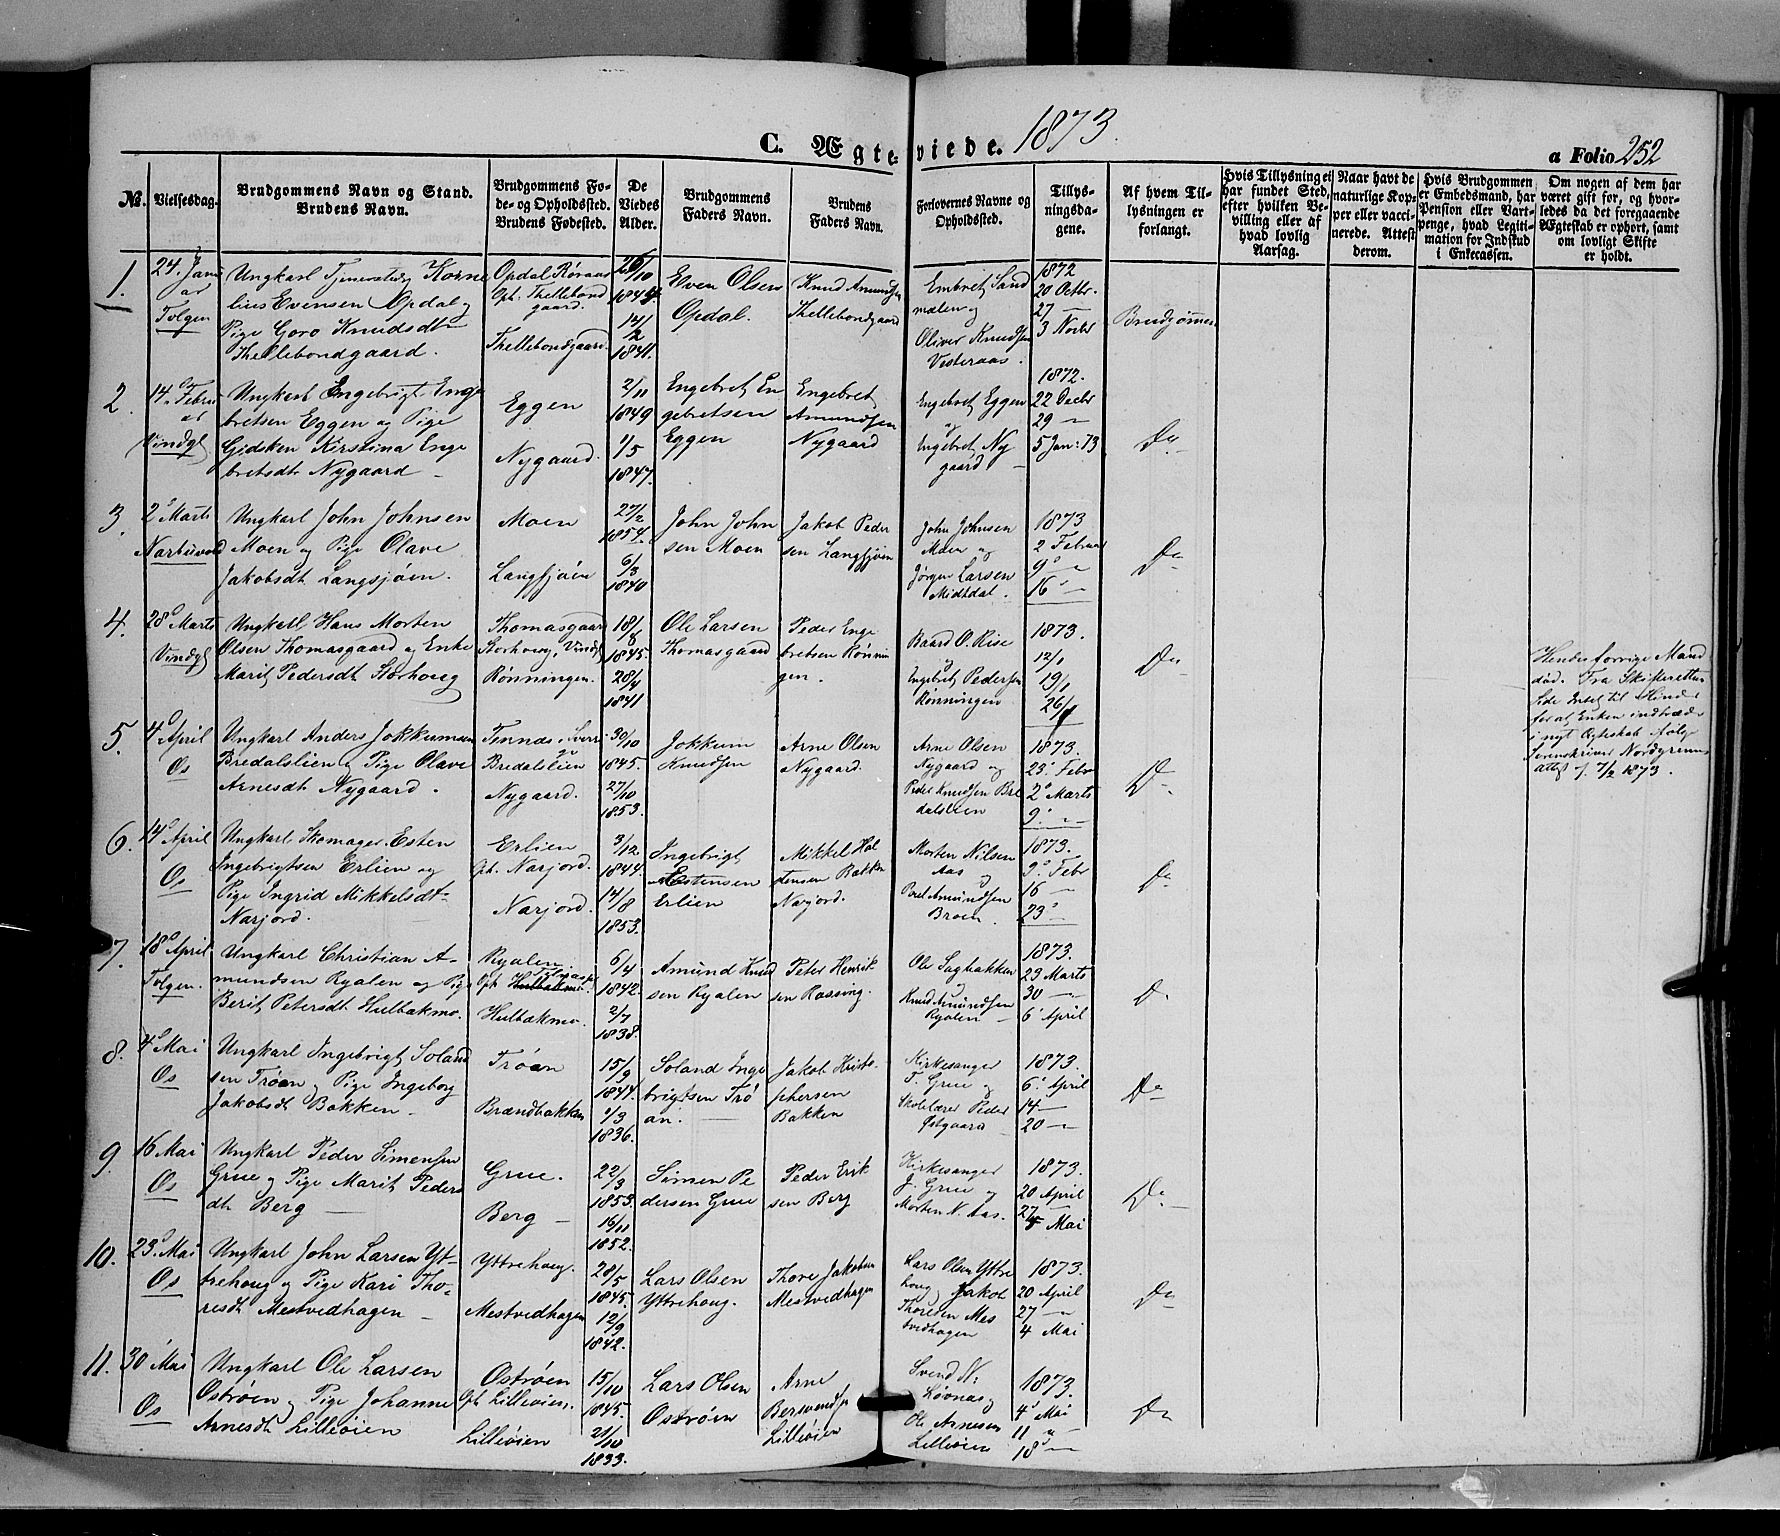 C. Ægteviede. 1873.
a Folio 252
No.
Vielsesdag.
Brudgommens Navn og Stand.
Brudens Navn.
Brudgommens Fø-
de- og Opholdssted.
Brudens Fødested.
De
Viedes
Alder.
Brudgommens
Faders Navn.
Brudens
Faders Navn.
Forlovernes Navne og
Opholdssted.
Tillys-
ningsda-
gene.
Af hvem Til-
lysningen er
forlangt.
Hvis Tillysning ei
har fundet Sted,
efter hvilken Be-
villing eller af
hvad lovlig
Aarsag.
Naar havt de
naturlige Kop-
per eller vacci-
nerede. Attest
derom.
Hvis Brudgommen
er Embedsmand, har
Pension eller Vart-
penge, hvad Legiti-
mation for Indskud
i Enkecassen.
Om nogen af dem har
været gift før, og hvor-
ledes da det foregaaende
Ægteskab er ophørt, samt
om lovligt Skifte
er holdt.
1.
24. Janu
ar
Tolgen
Ungkarl Tjenestedg Korne
lius Evensen Opdal og
Pige Goro Knudsdtr
Thellebondgaard.
Opdal Røraas
Oph. Thellebond
gaard.
Thellebondgaard.
26/10
1844
14/2
1841.
Even Olsen
Opdal.
Knud Amundsen
Thellebondgaard
Embret Sand
mælen og
Oliver Knudsen
Vesteraas.
1872
20 Octbr.
27 —
3 Novbr
Brudgommen
2.
14 Febru
ar
Vindgl
Ungkarl Engebrigt Enge
bretsen Eggen og Pige
Gidsken Kirstina Enge
bretsdtr Nygaard —
Eggen
Nygaard.
2/11
1849
1/5
1847.
Engebret En
gebretsen
Eggen
Engebret
Amundsen
Nygaard
Engebret Eggen
og
Ingebret Ny
gaard —
1872.
22 Decbr
29 —
5 Jan: 73
Do
3.
2 Marts
Narbuvold
Ungkarl John Johnsen
Moen og Pige Olave
Jakobsdt Langsjøen.
Moen
Langsjøen
27/2
1854.
6/3
1840
John John
sen Moen
Jakob Peder
sen Langsjøen
John Johnsen
Moen og
Jørgen Larsen
Midtdal.
1873
2 Februar
9 —
16 —
Do
4.
28 Marts
Vindgl
Ungkarl Hans Morten
Olsen Thomasgaard og Enke
Marit Pedersdt Storhoug
Thomasgaard
Storhoug, Vindgl
Rønningen.
18/8
1845.
28/4
1841
Ole Larsen
Thomasgaard
Peder Enge
bretsen Rønnin
gen.
Baard O. Rise
og
Ingebret Pedersen
Rønningen
1873.
12/1
19/1
26/1
Do
Hendes forrige Mand
død. Fra Skifteretten
Side Intet til Hinder
for at Enken indtræder
i nyt Ægteskab ifølge
Sorenskriver Nordgrens
Attest f. 7/2 1873.
5.
4 April
Os
Ungkarl Anders Jokkumsen
Bredalslien og Pige Olave
Arnesdt Nygaard.
Tennæs i Sverr
ge
Bredalslien
Nygaard.
30/10
1845.
27/10
1853.
Jokkum
Knudsen
Arne Olsen
Nygaard.
Arne Olsen
Nygaard og
Peder Knudsen Bre
dalslien
1873.
23. Febr
2 Marts
9 —
Do
6.
14 April
Os
Ungkarl Skomager Esten
Ingebrigtsen Erlien og
Pige Ingrid Mikkelsdt
Narjord.
Erlien
Oph. Narjord.
Narjord.
3/12
1844.
14/8
1853.
Ingebrigt
Estensen
Erlien
Mikkel Hal
densen Bakken
Narjord.
Morten Nilsen
Aas og
Poul Amundsen
Broen.
1873.
9. Febr
16 —
23 —
Do
7.
18 April
Tolgen.
Ungkarl Christian A-
mundsen Ryalen og Pige
Berit Petersdt Hulbakmo.
Ryalen.
Oph. Hulbakmo.
Hulbakmo.
6/4
1842.
2/7
1838.
Amund Knud
sen Ryalen
Peter Henrik
sen Rossing.
Ole Sagbakken
og
Knud Amundsen
Ryalen —
1873.
23 Marts
30 —
6 April
Do
8.
4 Mai
Os
Ungkarl Ingebrigt Soland
sen Trøen og Pige Ingeborg
Jakobsdt Bakken —
Trøen
Brændbakken
15/9
1844.
1/3
1836.
Soland Inge
brigtsen Trø
en. —
Jakob Kristo
phersen
Bakken
Kirkesanger
T. Grue og
Skolelærer Peder
Østgaard
1873.
6 April
14 —
20 —
Do
9.
16 Mai
Os
Ungkarl Peder Simensen
Grue og Pige Marit Peders
dtr Berg —
Grue.
Berg —
22/3
1853.
16/11
1852.
Simen Pe
dersen Grue
Peder Erik
sen Berg
Kirkesanger
J. Grue og
Morten N. Aas.
1873.
20 April
27 —
4 Mai
Do
10.
23 Mai
Os
Ungkarl John Larsen Yt-
trehoug og Pige Kari Tho-
resdt Mestvedhagen —
Yttrehoug.
Mestvedhagen
28/5
1845.
12/9
1842.
Lars Olsen
Yttrehoug.
Thore Jakobsen
Mestvedhagen
Lars Olsen Yttre
houg og Jakob
Thoresen Mes
tvedhagen
1873.
20 April
27 —
4 Mai
Do
11.
30 Mai
Os
Ungkarl Ole Larsen
Ostrøen og Pige Johanne
Arnesdt Lilleøien
Ostrøen
Oph. Lilleøien.
Lilleøien
15/10
1845.
21/10
1833.
Lars Olsen
Ostrøen
Arne
Bersvendsen
Lilleøien
Svend N.
Løvnas og
Ole Arnesen
Lilleøien
1873.
4 Mai
11 —
18 —
Do